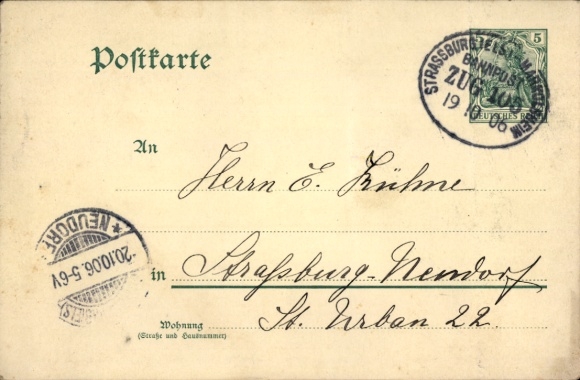 Postkarte
5
DEUTSCHES REICH
STRASSBURG (ELS.)
BAHNPOST
ZUG 105
19 10 06
An
Herrn E. Kühne
NEUDORF
20.10.06. 5-6V
in Straßburg-Neudorf
St. Urban 22.
Wohnung
(Straße und Hausnummer)